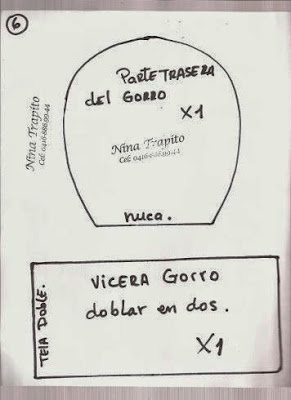 6
Parte TRASERA
del GORRO
X1
Nina Trapito
Cel: 0416-686.99.44
Nina Trapito
Cel: 0416-686.99.44
nuca.
TElA DOBlE.
VICERA Gorro
doblar en dos.
X1